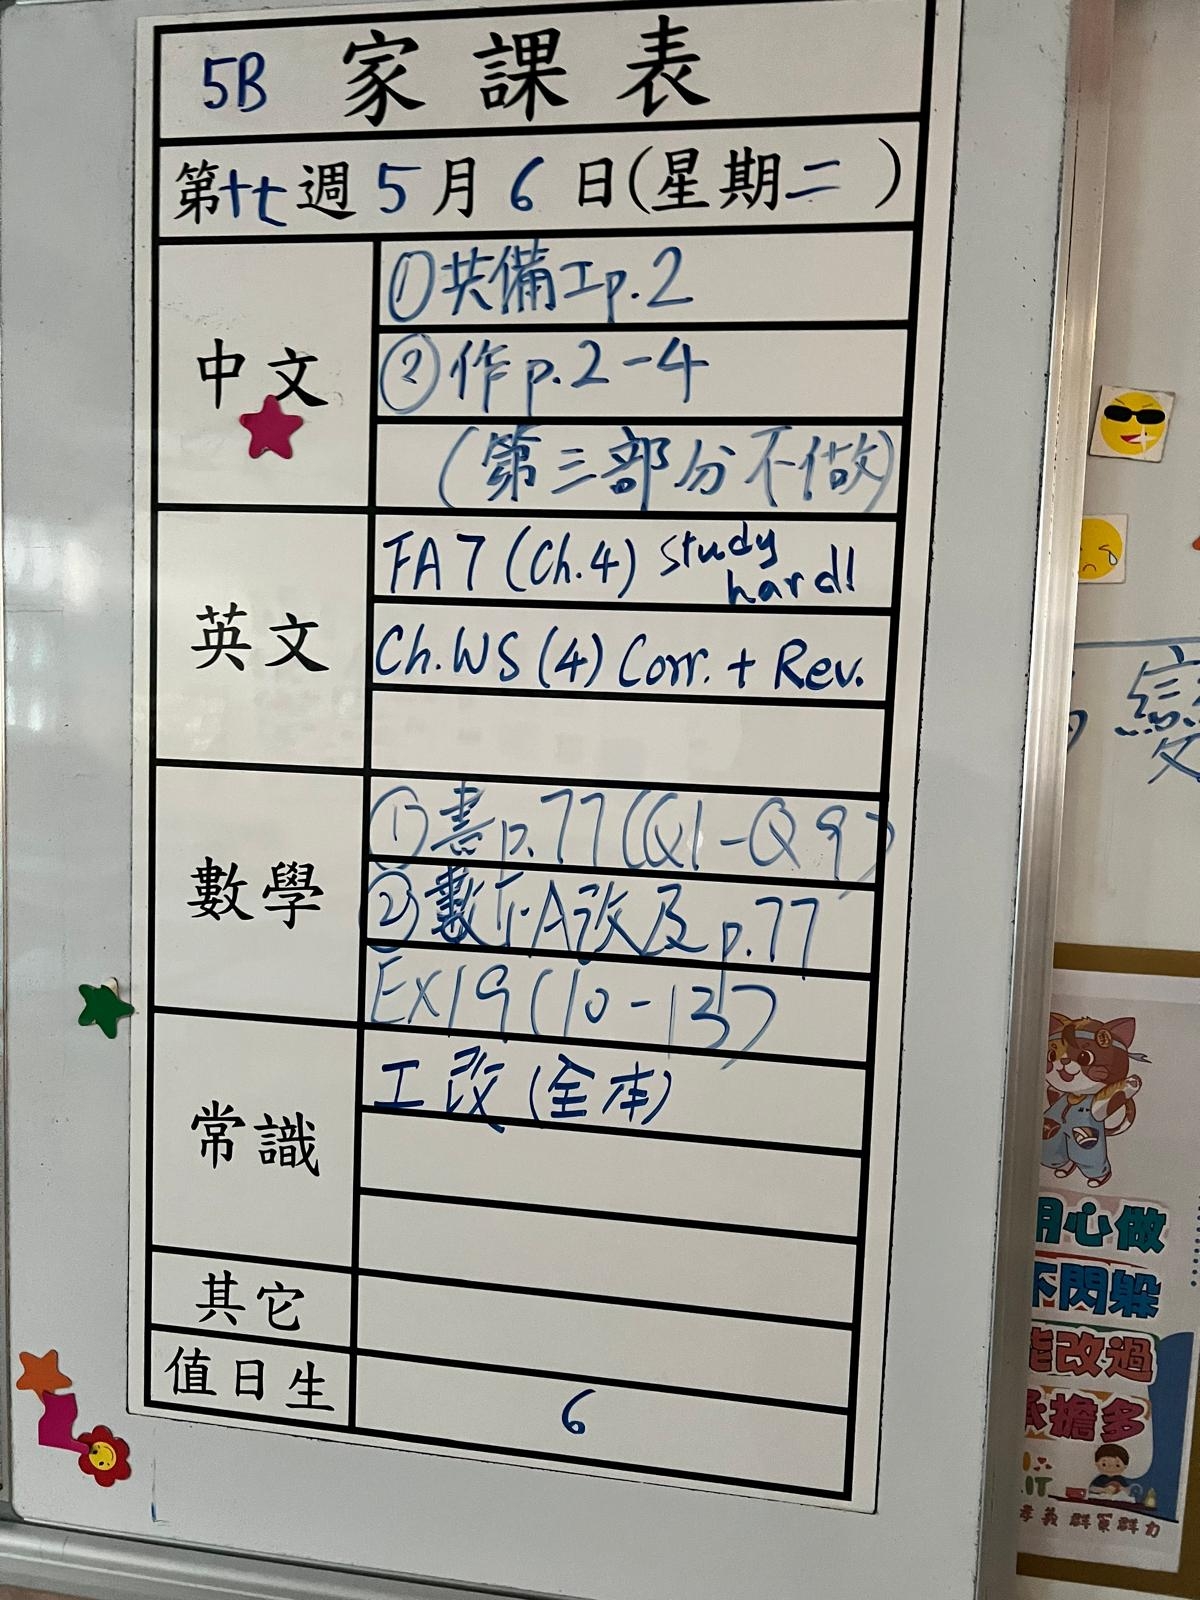 5B 家課表
第十七週5月6日(星期二)
中文
①共備工p.2
②作p.2-4
(第三部分不做)
英文
FA7 (Ch.4) study hard!
Ch.WS (4) Corr. + Rev.
數學
①書p.77(Q1-Q9)
②數下A改及p.77
Ex19(10-13)
常識
工改(全本)
其它
值日生
6
變
用心做
不閃躲
能改過
承擔多
IT
孝義 群策群力